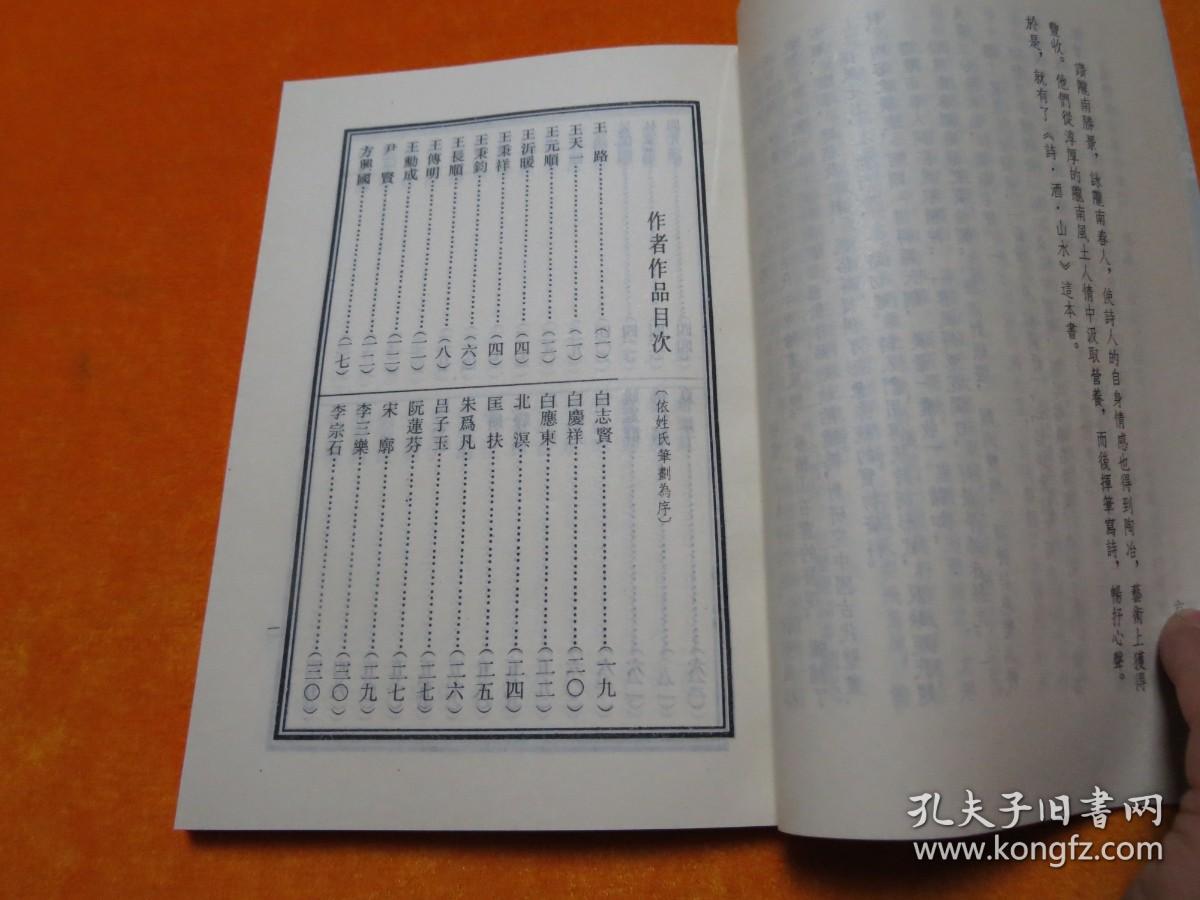 踏隴南勝景，詠隴南春人，使詩人的自身情感也得到陶冶，藝術上獲得
豐收。他們從淳厚的隴南風土人情中汲取營養，而後揮筆寫詩，暢抒心聲。
於是，就有了《詩·酒·山水》這本書。
作者作品目次（依姓氏筆劃為序）
王　路……（一）
王天一……（一）
王元順……（二）
王沂暖……（四）
王秉祥……（四）
王秉鈞……（六）
王長順……（八）
王傳明……（一一）
王勳成……（一二）
尹　賢……（一二）
方興國……（一七）
白志賢……（一九）
白慶祥……（二〇）
白應東……（二二）
北　溟……（二四）
匡　扶……（二五）
朱爲凡……（二六）
呂子玉……（二七）
阮蓮芬……（二七）
宋　廓……（二九）
李三樂……（三〇）
李宗石……（三〇）
一
孔夫子旧书网
www.kongfz.com